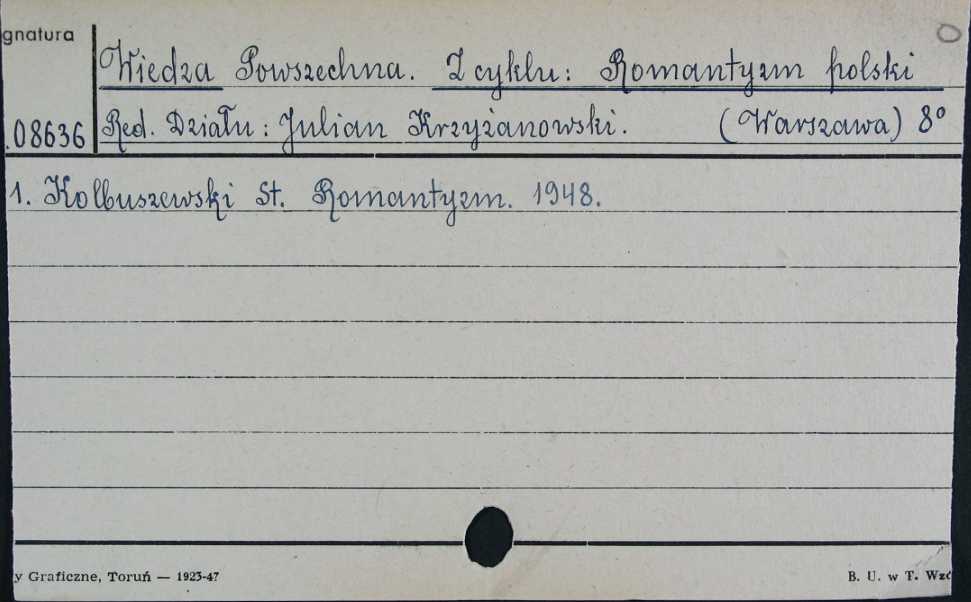 gnatura
Wiedza Powszechna. Z cyklu: Romantyzm polski
.08636 Red. Działu: Julian Krzyżanowski. (Warszawa) 8°
1. Kolbuszewski St. Romantyzm. 1948.
y Graficzne, Toruń — 1923-47
B. U. w T. Wzó